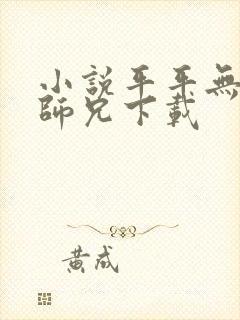 小說平平無
師兄下載
黃成